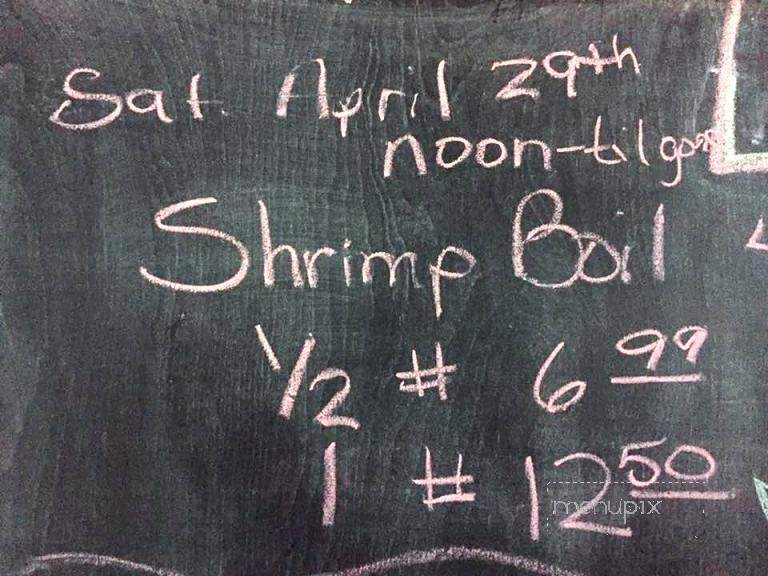 Sat. April 29th
noon-til gone
Shrimp Boil
1/2 # 6 99
1 # 12 50
menupix